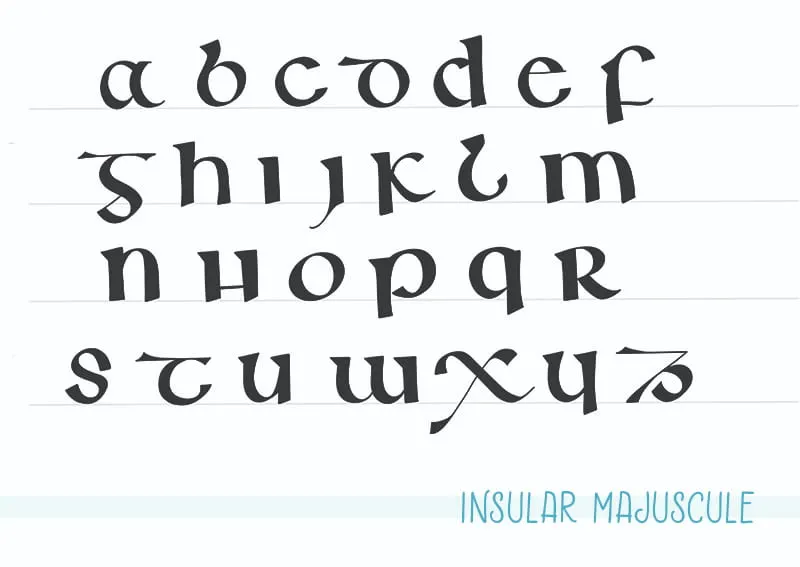 a b c ꝺ d e f
g h ı j k l m
n N o p q R
s t u w x y z
INSULAR MAJUSCULE